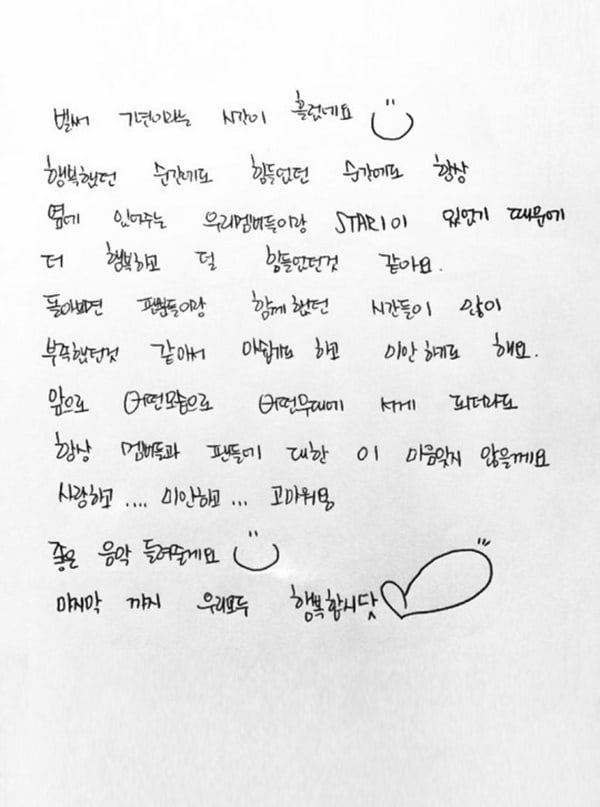 벌써 7년이라는 시간이 흘렀네요
행복했던 순간에도 힘들었던 순간에도 항상
옆에 있어주는 우리멤버들이랑 STAR1이 있었기 때문에
더 행복하고 덜 힘들었던것 같아요.
돌아보면 팬분들이랑 함께했던 시간들이 많이
부족했던것 같아서 아쉽기도 하고 미안하기도 해요.
앞으로 어떤모습으로 어떤무대에 서게 되더라도
항상 멤버들과 팬들에 대한 이 마음잊지 않을께요
사랑하고 .... 미안하고 ... 고마워용
좋은 음악 들려줄게요
마지막 까지 우리모두 행복합시닷